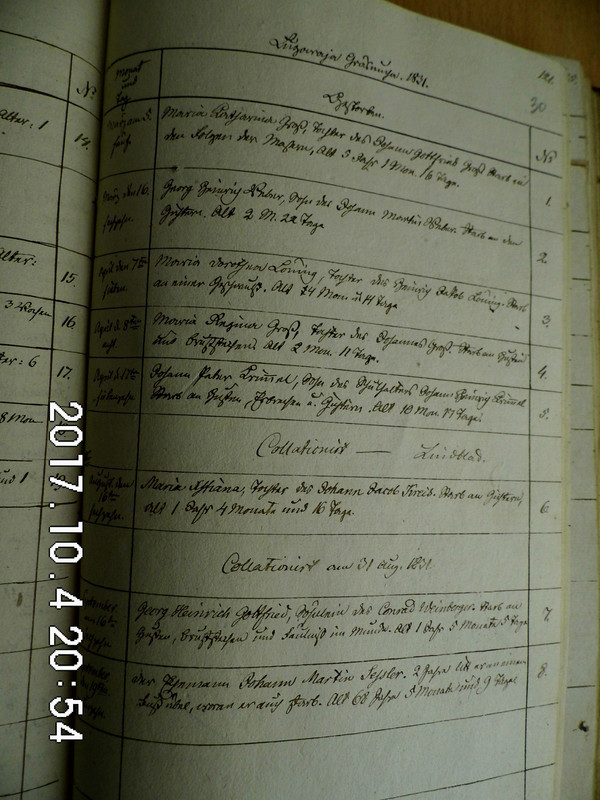 Lugowaja Gräsnucha. 1831.
181.
30
Monat und Tag
Gestorben.
No
Maria Katharina Groß, Tochter des Johann Gottfried Groß starb an
den Folgen der Masern, Alt 3 Jahr 1 Mon. 16 Tage.
1.
März den 16.
Georg Heinrich Weber, Sohn des Johann Martin Weber. Starb an den
Gichtern. Alt 2 M. 22 Tage
2
April den 7ten
Maria Dorothea Löning, Tochter des Heinrich Jakob Löning. Starb
an einer Geschwulst. Alt 11 Mon. u. 14 Tage
3.
April d. 8ten
Maria Regina Groß, Tochter des Johannes Groß. Starb an Husten
und Brustkrampf. Alt 2 Mon. 11 Tage.
4.
Johann Peter Krümmel, Sohn des Schulhalters Johann Heinrich Krümmel
Starb an Husten, Erbrechen u. Gichtern. Alt 10 Mon. 17 Tage.
5.
Collationirt — Lindblad.
August den
16ten
Maria Christiana, Tochter des Johann Jacob Kreib. Starb an Gichtern,
Alt 1 Jahr 4 Monate und 16 Tage.
6
Collationirt am 31 Aug. 1831.
Georg Heinrich Gottfried, Söhnlein des Conrad Weinberger. Starb an
Husten, Brustkrampf und Fäulniß im Munde. Alt 1 Jahr 5 Monate 5 Tage
7.
Der Ehemann Johann Martin Fessler. 2 Jahre litt er an einem
woran er auch starb. Alt 68 Jahre 5 Monate und 9 Tage
8.
No
Alter: 1
14.
Alter:
15.
3 Wochen
16.
17.
8 Mon
und 1
2017.10.4 20:54